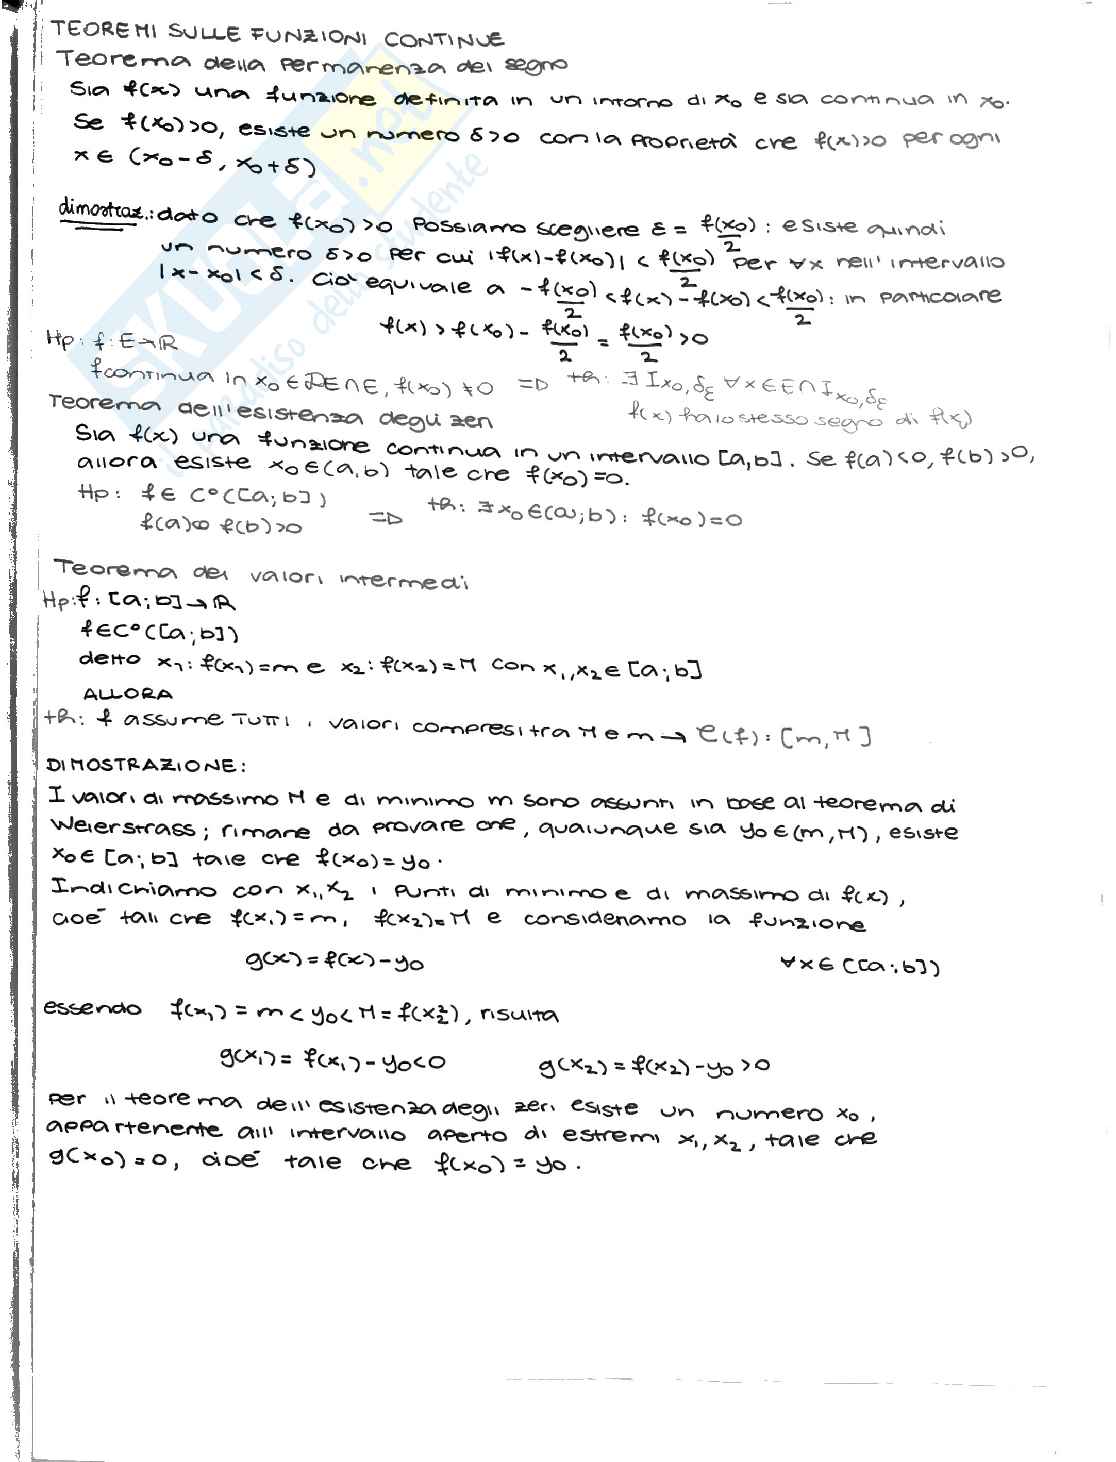 TEOREMI SULLE FUNZIONI CONTINUE
Teorema della permanenza del segno
Sia f(x) una funzione definita in un intorno di x₀ e sia continua in x₀.
Se f(x₀)>0, esiste un numero δ>0 con la proprietà che f(x)>0 per ogni
x ∈ (x₀-δ, x₀+δ)
dimostraz.: dato che f(x₀)>0 possiamo scegliere ε = f(x₀)/2 : esiste quindi
un numero δ>0 per cui |f(x)-f(x₀)| < f(x₀)/2 per ∀x nell'intervallo
|x-x₀|<δ. Ciò equivale a -f(x₀)/2 < f(x)-f(x₀) < f(x₀)/2 : in particolare
f(x) > f(x₀) - f(x₀)/2 = f(x₀)/2 > 0
Hp: f: E→ℝ
f continua in x₀ ∈ DE∩E, f(x₀) ≠0 => th: ∃ I x₀,δε ∀x∈E∩I x₀,δε
f(x) ha lo stesso segno di f(x₀)
Teorema dell'esistenza degli zeri
Sia f(x) una funzione continua in un intervallo [a,b]. Se f(a)<0, f(b)>0,
allora esiste x₀∈(a,b) tale che f(x₀)=0.
Hp: f∈C°([a;b])
f(a)<0 f(b)>0 => th: ∃x₀∈(a;b): f(x₀)=0
Teorema dei valori intermedi
Hp: f: [a;b]→ℝ
f∈C°([a;b])
detto x₁: f(x₁)=m e x₂: f(x₂)=M con x₁,x₂∈[a;b]
ALLORA
th: f assume TUTTI i valori compresi tra M e m → C(f): [m,M]
DIMOSTRAZIONE:
I valori di massimo M e di minimo m sono assunti in base al teorema di
Weierstrass; rimane da provare che, qualunque sia y₀∈(m,M), esiste
x₀∈[a;b] tale che f(x₀)=y₀.
Indichiamo con x₁,x₂ i punti di minimo e di massimo di f(x),
cioè tali che f(x₁)=m, f(x₂)=M e consideriamo la funzione
g(x)=f(x)-y₀ ∀x∈([a;b])
essendo f(x₁)=m<y₀<M=f(x₂), risulta
g(x₁)=f(x₁)-y₀<0 g(x₂)=f(x₂)-y₀>0
Per il teorema dell'esistenza degli zeri esiste un numero x₀,
appartenente all'intervallo aperto di estremi x₁,x₂, tale che
g(x₀)=0, cioè tale che f(x₀)=y₀.
SKUOLA.net
il paradiso dello studente